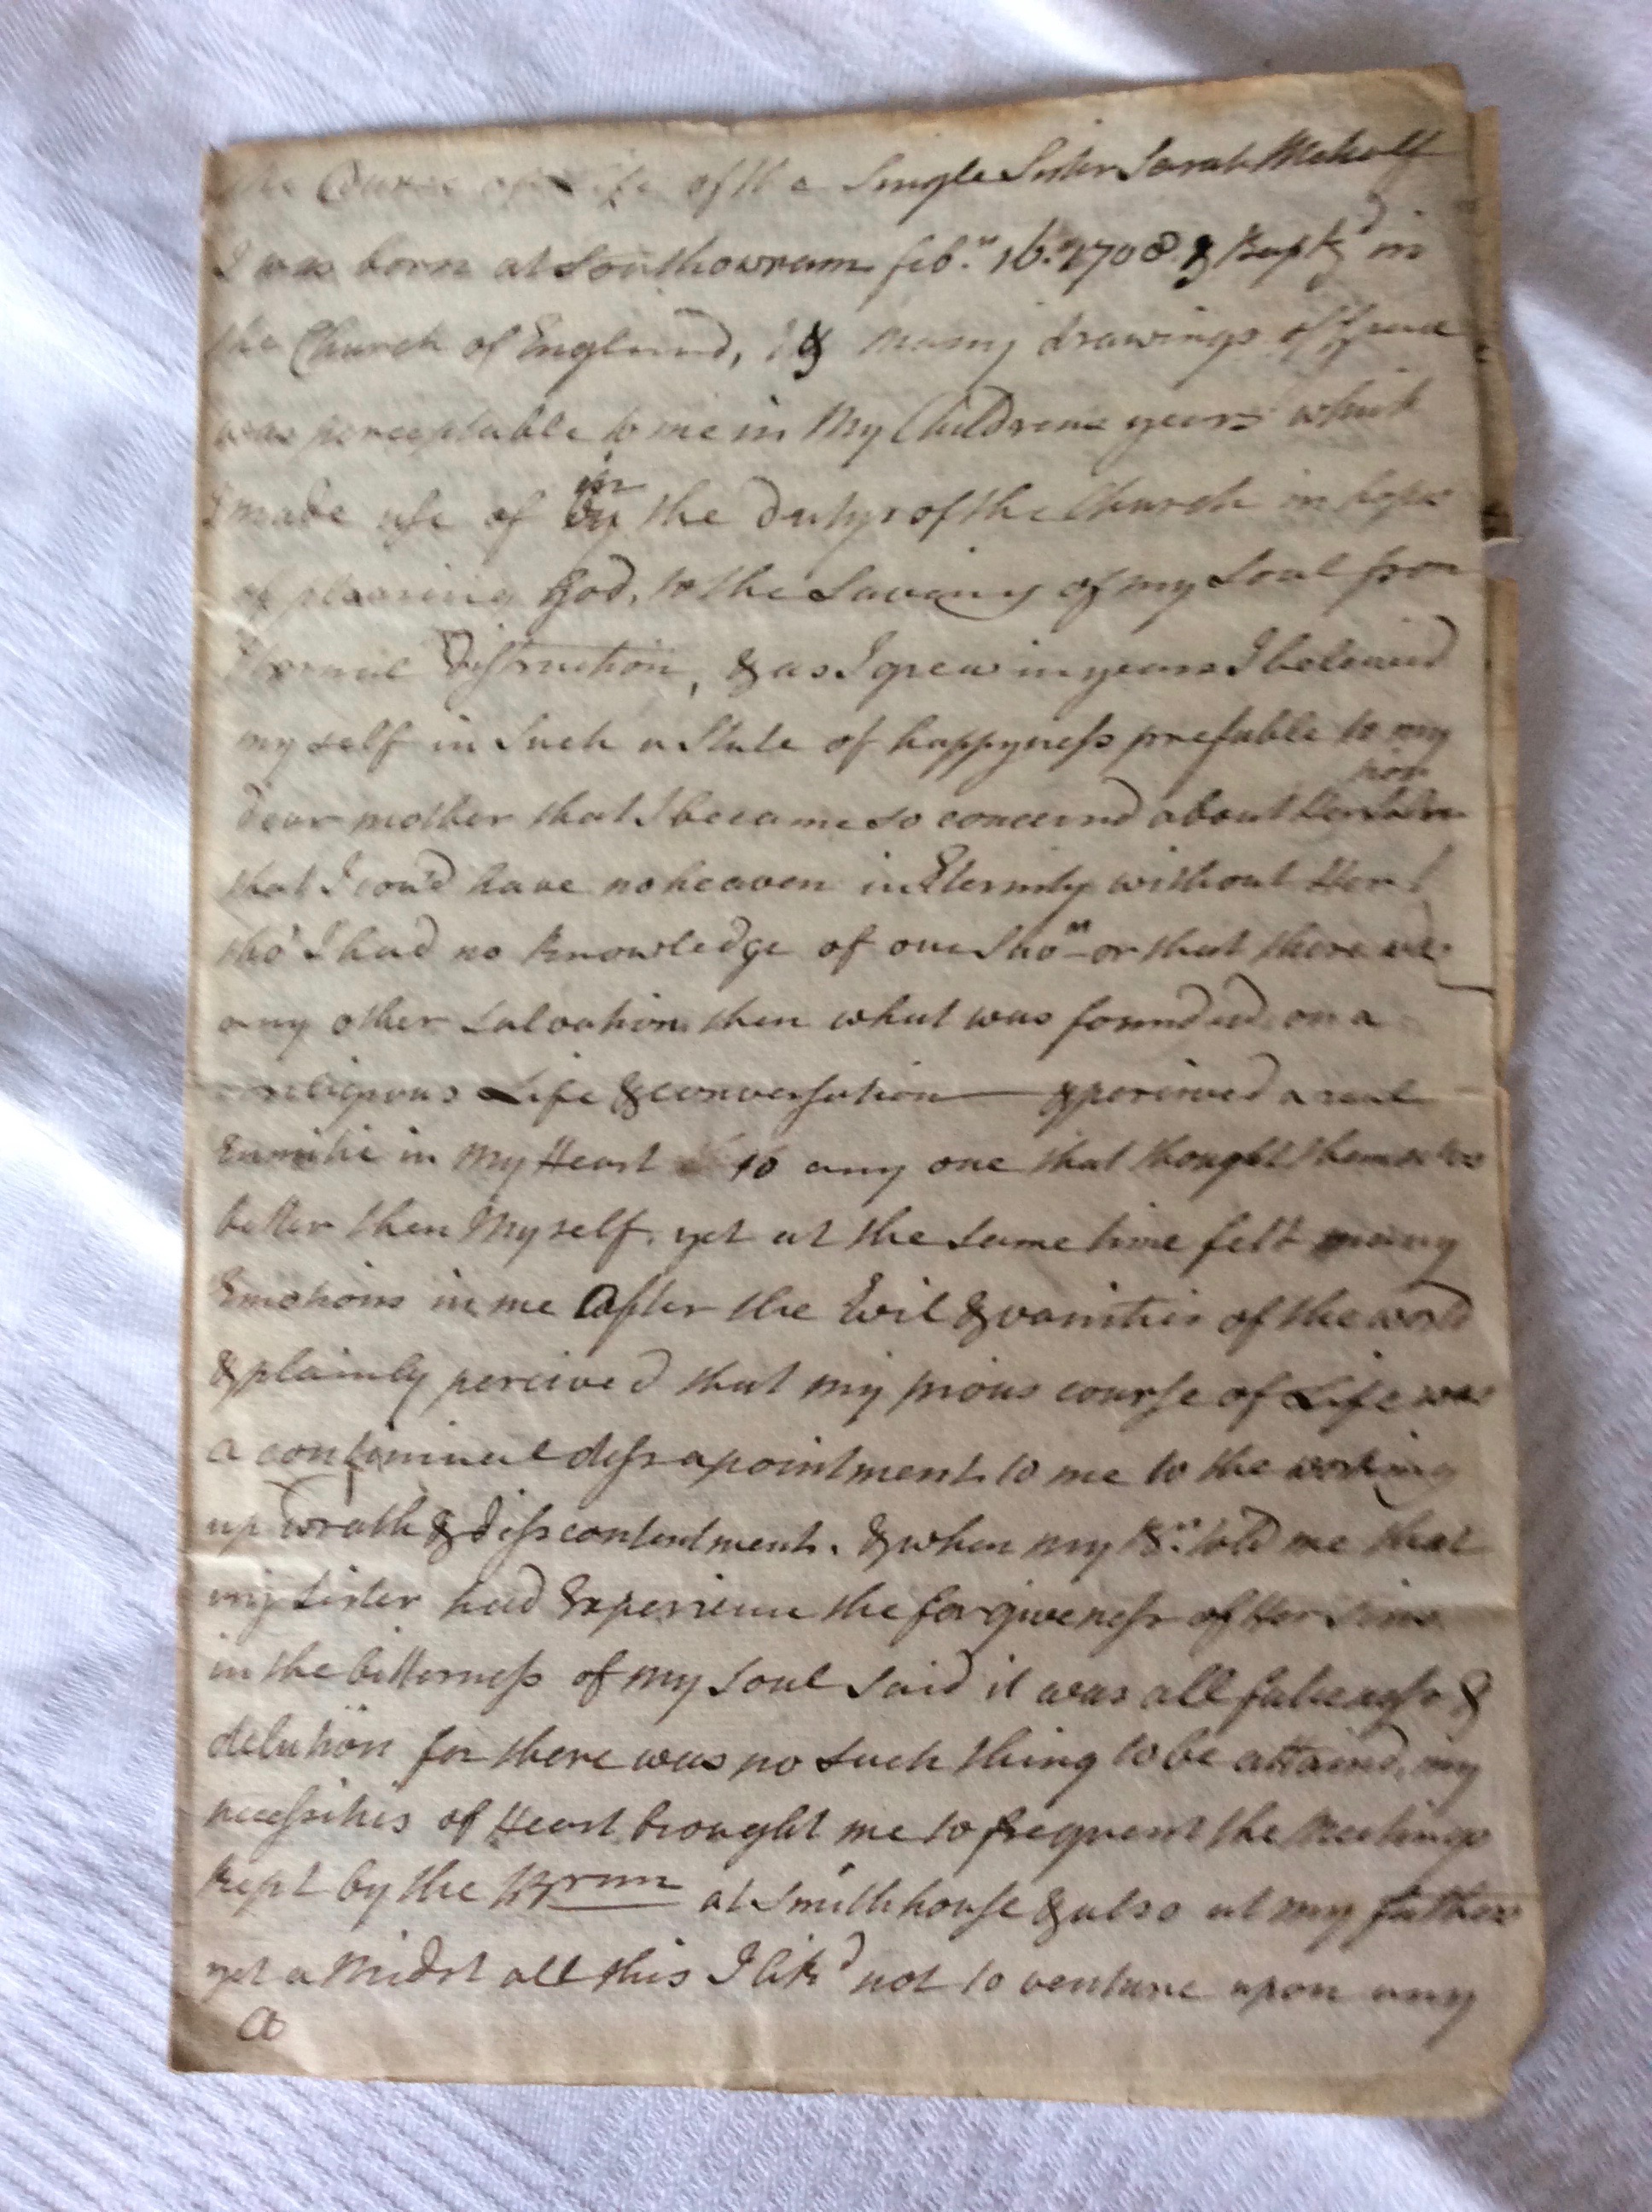 The Course of Life of the Single Sister Sarah Metcalf
I was born at Southowram feb.ry 16th 1708 & Baptzd in
the Church of England, & many drawings of Grace
was perceptable to me in My Childrens years which
I made use of in by the dutys of the Church in hope
of pleasing God, to the Saveing of my Soul from
Eternal Distruction, & as I grew in years I beleived
my self in Such a State of happyness prefable to my
dear mother that I became so concernd about Her
that I cou'd have no heaven in Eternity without Her!
tho' I had no knowledge of our Savr or that there was
any other Salvation then what was founded on a
religious Life & conversation & perceived a real
Enmitie in My Heart to any one that thought themselves
better then My self. yet at the same time felt many
Emotions in me After the Evil & vanities of the world
& plainly perceived that my pious course of Life was
a continual dissapointment to me to the working
up wrath & disscontentment. & when my Br: told me that
my Sister had Experience the forgiveness of Her Sins
in the bitterness of my Soul Said it was all falseness &
delution for there was no Such thing to be attaind, my
necessities of Heart brought me to frequent the Meetings
kept by the Brnn at Smith house & also at my fathers
yet a Midst all this I likd not to venture upon any
a